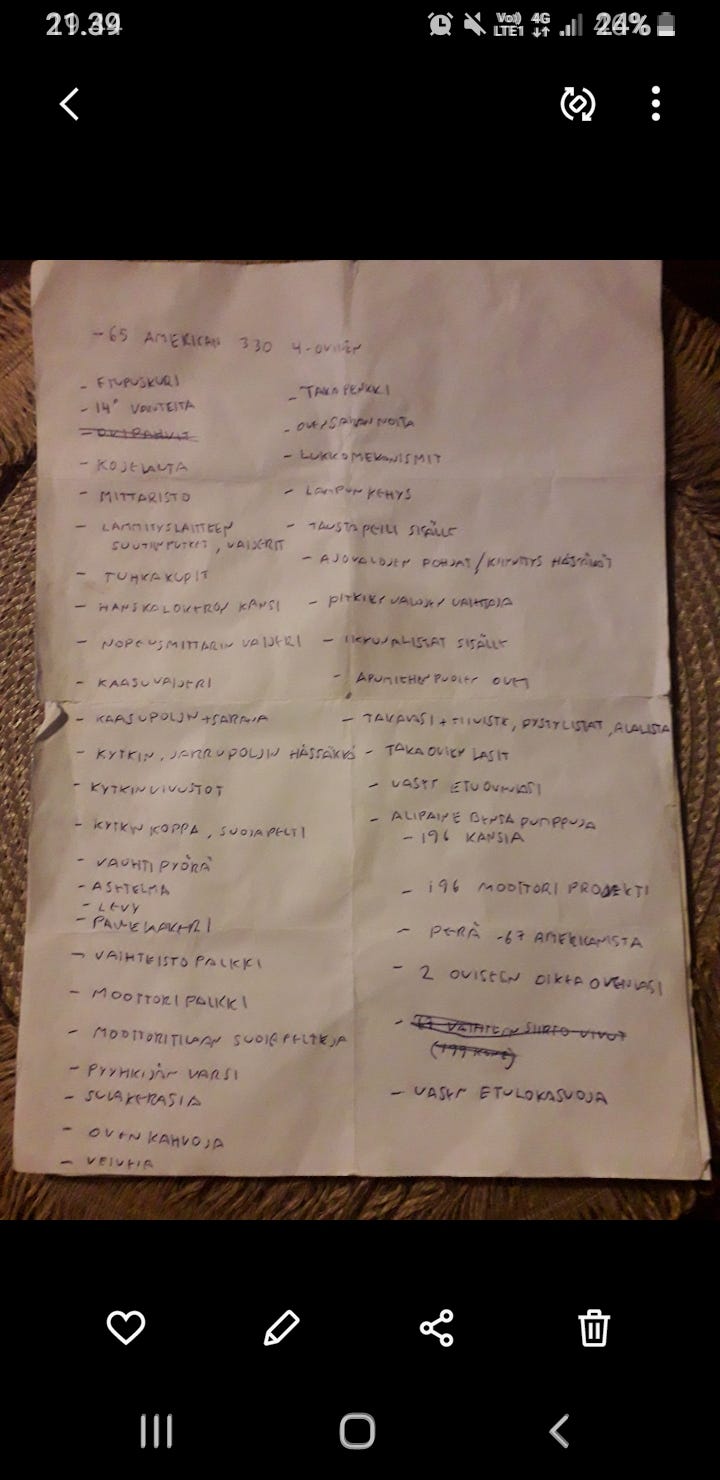 21.39
Voo) 4G
LTE1 24%
-65 AMERICAN 330 4-OVINEN
- ETUPUSKURI
- 14" VANTEITA
- OVIPAHVIT
- KOJELAUTA
- MITTARISTO
- LÄMMITYSLAITTEEN
SUUTINPUTKET, VAIJERIT
- TUHKAKUPIT
- HANSKALOKERON KANSI
- NOPEUSMITTARIN VAIJERI
- KAASUVAIJERI
- KAASUPOLJIN + SARANA
- KYTKIN, JARRUPOLJIN HÄSSÄKKÄ
- KYTKINVIVUSTOT
- KYTKIN KOPPA, SUOJAPELTI
- VAUHTIPYÖRÄ
- ASETELMA
- LEVY
- PAINELAKERI
- VAIHTEISTO PALKKI
- MOOTTORI PALKKI
- MOOTTORITILAAN SUOJAPELTEJA
- PYYHKIJÄN VARSI
- SULAKERASIA
- OVEN KAHVOJA
- VEIVEJÄ
- TAKAPENKKI
- OVENSARANNOITA
- LUKKOMEKANISMIT
- LAMPUN KEHYS
- TAUSTAPEILI SISÄLLE
- AJOVALOJEN POHJAT / KIINNITYS HÄSSÄKÄT
- PITKIEN VALOJEN VAIHTAJA
- IKKUNALISTAT SISÄLLE
- APUMIEHEN PUOLEN OVET
- TAKALASI + TIIVISTE, PYSTYLISTAT, ALALISTA
- TAKAOVIEN LASIT
- VASEN ETUOVENLASI
- ALIPAINE BENSA PUMPPUJA
- 196 KANSIA
- 196 MOOTTORI PROJEKTI
- PERÄ -67 AMERIKANISTA
- 2 OVISEEN OIKEA OVENLASI
- VAIHTEEN SIIRTO VIVUT
(199 KONE)
- VASEN ETULOKASUOJA